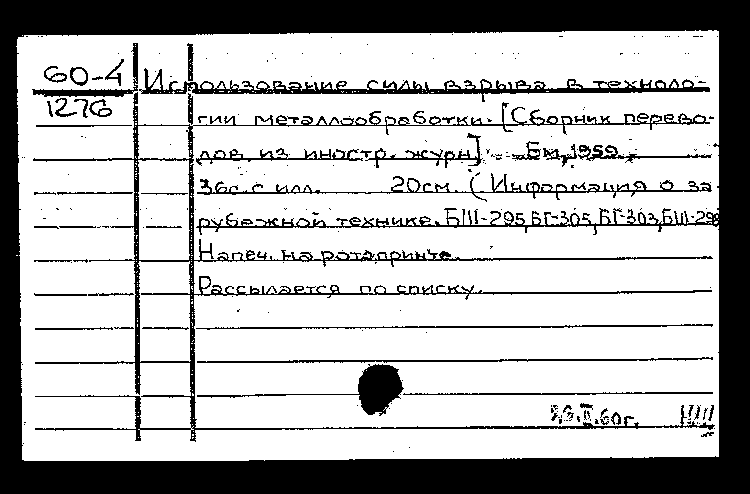 60-4 Использование силы взрыва в техноло-
1276 гии металлообработки. [Сборник перево-
дов из иностр. журн] Бм, 1959,
36с. с илл. 20см. (Информация о за-
рубежной технике. БIII-295, БГ-305, БГ-303, БIII-298
Напеч. на ротапринте.
Рассылается по списку.
.II.60г.